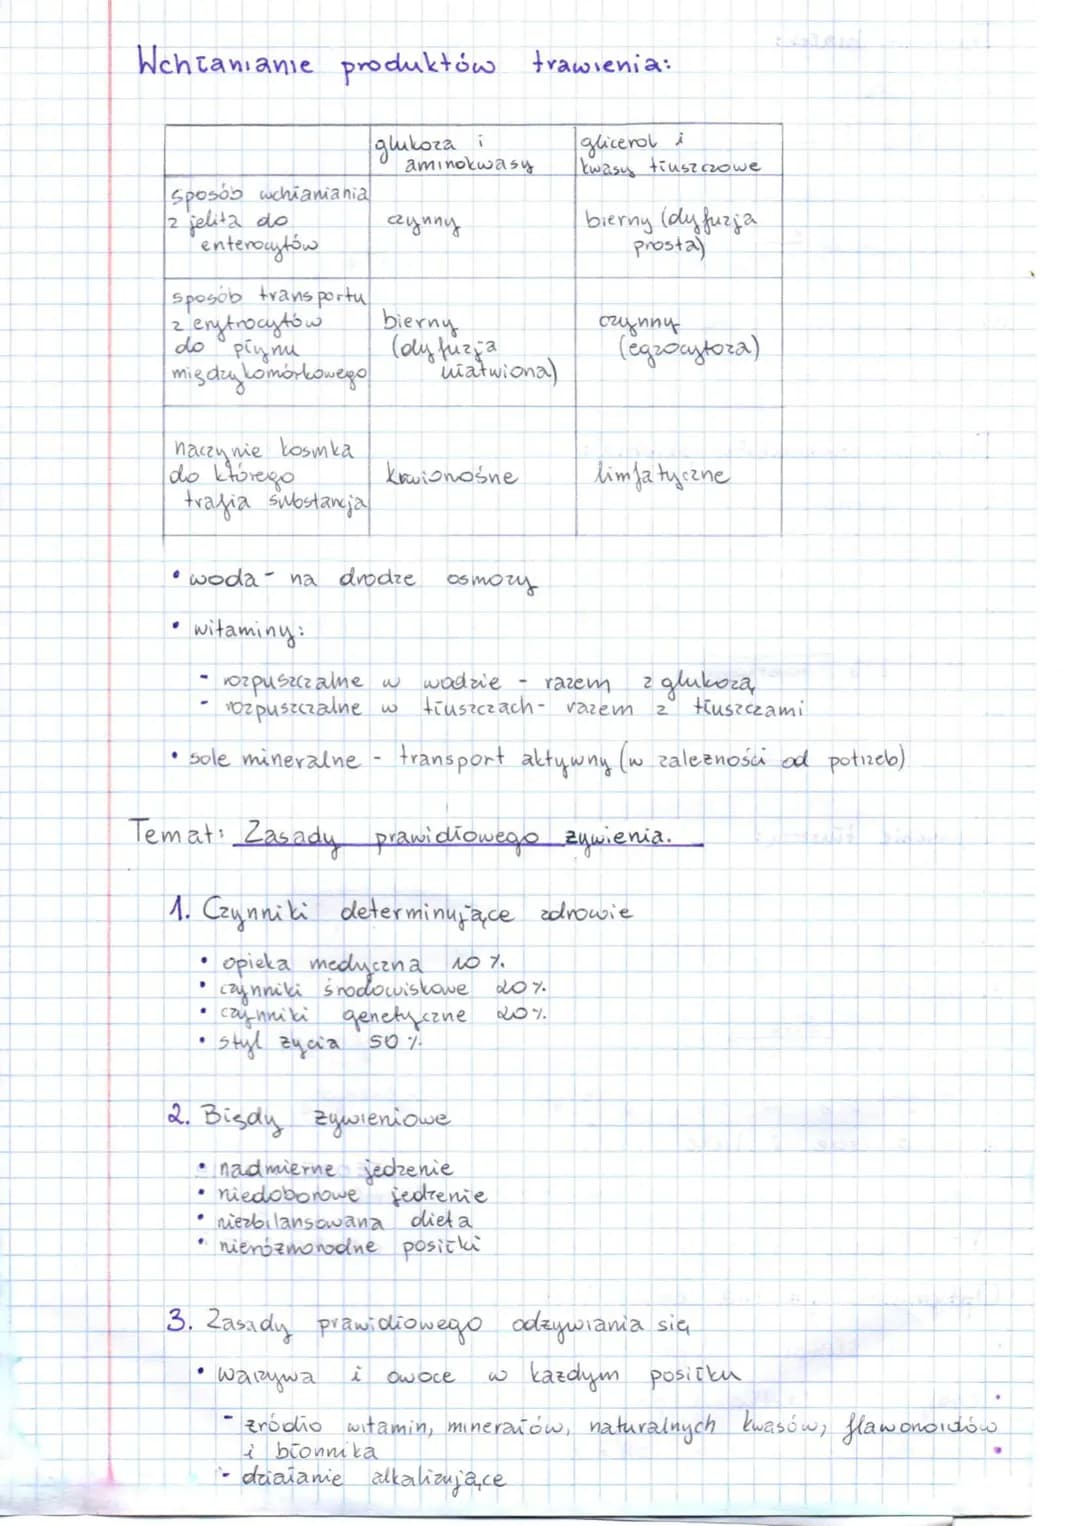 Wchłanianie produktów trawienia:
glukoza i
aminokwasy
glicerol i
kwasy tłuszczowe
sposób wchłaniania
z jelita do
enterocytów
czynny
bierny (dyfuzja
prosta)
sposób transportu
z erytrocytów
do płynu
międzykomórkowego
bierny
(dyfuzja
ułatwiona)
czynny
(egzocytoza)
naczynie kosmka
do którego
trafia substancja
krwionośne
limfatyczne
• woda - na drodze osmozy
• witaminy:
- rozpuszczalne w wodzie - razem z glukozą
- rozpuszczalne w tłuszczach - razem z tłuszczami
• sole mineralne - transport aktywny (w zależności od potrzeb)
Temat: Zasady prawidłowego żywienia.
1. Czynniki determinujące zdrowie
• opieka medyczna 10%
• czynniki środowiskowe 20%
• czynniki genetyczne 20%
• styl życia 50%
2. Błędy żywieniowe
• nadmierne jedzenie
• niedoborowe jedzenie
• niezbilansowana dieta
• nieróżnorodne posiłki
3. Zasady prawidłowego odżywiania się
• warzywa i owoce w każdym posiłku
- źródło witamin, minerałów, naturalnych kwasów, flawonoidów
i błonnika
- działanie alkalizujące